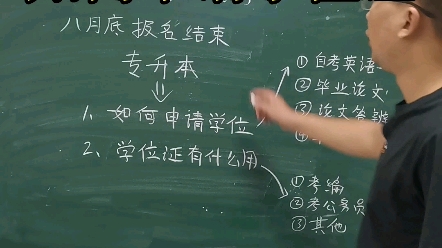 八月底报名结束
专升本
1、如何申请学位
2、学位证有什么用
①自考英语
②毕业论文
③论文答辩
①考编
②考公务员
③其他